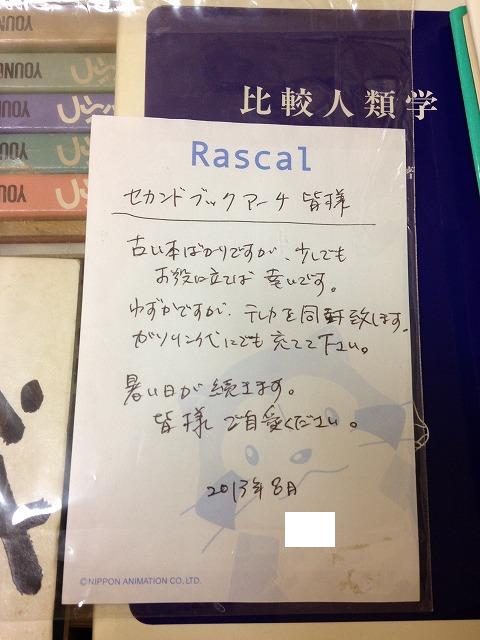 YOUNG
YOUNG
YOUNG
YOU
YOU
比較人類学
Rascal
セカンドブックアーチ 皆様
古い本ばかりですが、少しでも
お役に立てば幸いです。
わずかですが、テレカを同封致します。
ガソリン代にでも充てて下さい。
暑い日が続きます。
皆様ご自愛ください。
2013年8月
©NIPPON ANIMATION CO., LTD.